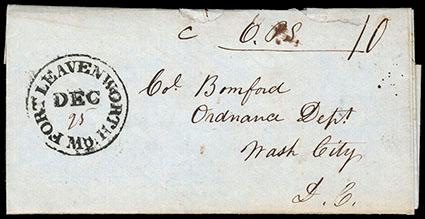 C O.P.S. 10
FORT LEAVENWORTH Mo.
DEC
25
Col. Bomford
Ordnance Dept.
Wash City
D. C.